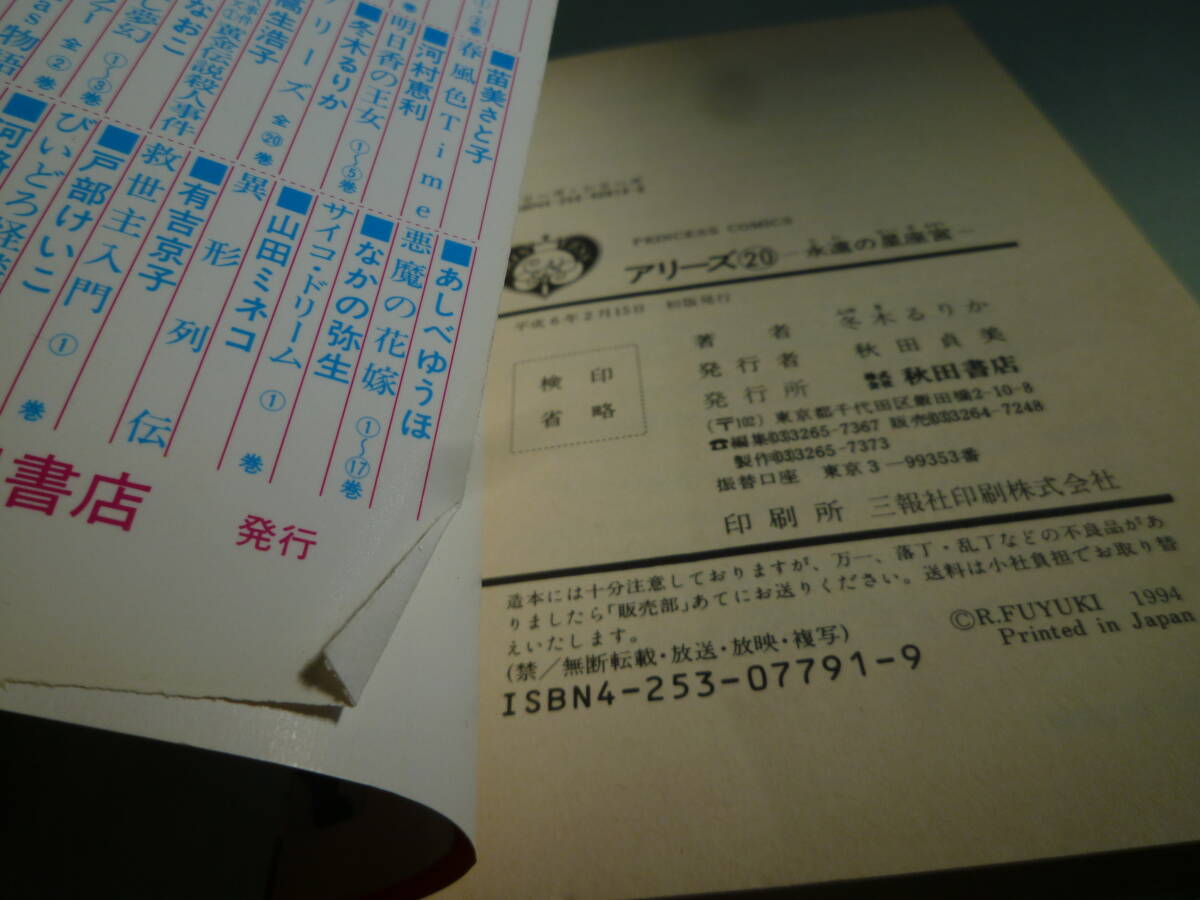 苗美さと子
春風色Time
河村恵利
明日香の王女 ①〜⑤巻
冬木るりか
アリーズ 全⑳巻
高生浩子
黄金伝説殺人事件
なおこ
し夢幻 ①〜③巻
全②巻
物語
あしべゆうほ
悪魔の花嫁 ①〜⑰巻
なかの弥生
サイコ・ドリーム ①巻
山田ミネコ
異形列伝
有吉京子
救世主入門 ①巻
戸部けいこ
びいどろ
書店
発行
PRINCESS COMICS
アリーズ⑳ ―永遠の星座宮―
平成6年2月15日 初版発行
検印
省略
著者 冬木るりか
発行者 秋田貞美
発行所 株式会社 秋田書店
(〒102) 東京都千代田区飯田橋2-10-8
☎編集03(3265-7367 販売03(3264-7248
製作03(3265-7373
振替口座 東京3―99353番
印刷所 三報社印刷株式会社
造本には十分注意しておりますが、万一、落丁・乱丁などの不良品があ
りましたら「販売部」あてにお送りください。送料は小社負担でお取り替
えいたします。
(禁/無断転載・放送・放映・複写)
©R.FUYUKI 1994
Printed in Japan
ISBN4-253-07791-9